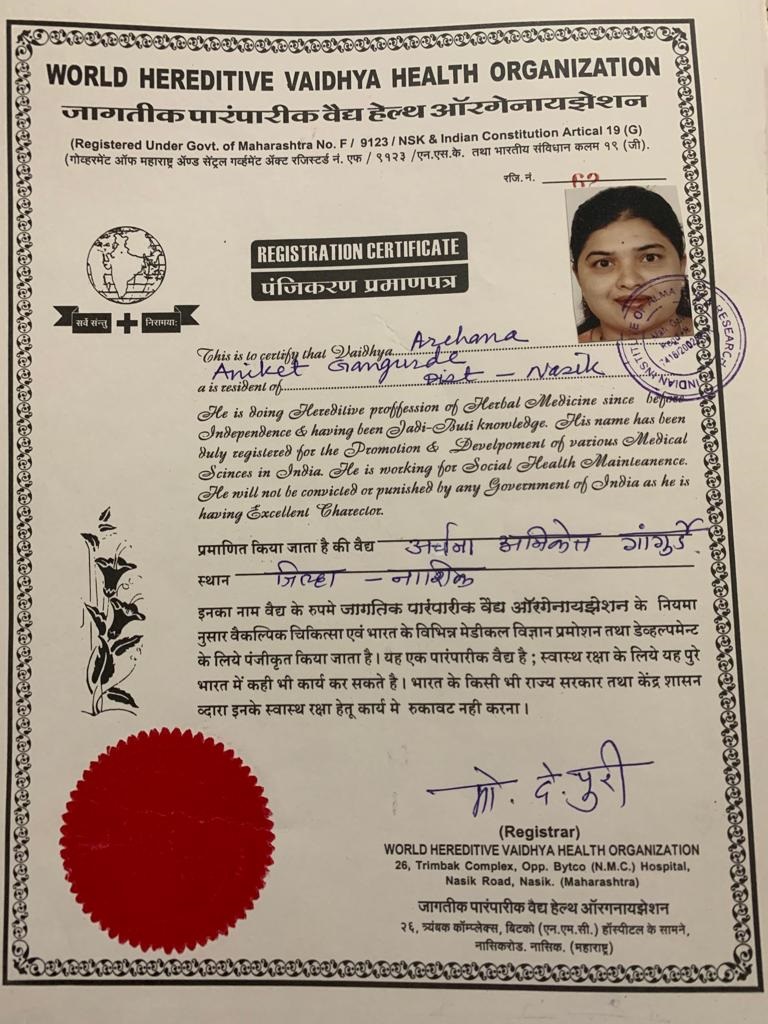 WORLD HEREDITIVE VAIDHYA HEALTH ORGANIZATION
जागतीक पारंपारीक वैद्य हेल्थ ऑरगेनायझेशन
(Registered Under Govt. of Maharashtra No. F / 9123 / NSK & Indian Constitution Artical 19 (G)
(गोव्हरमेंट ऑफ महाराष्ट्र ॲण्ड सेंट्रल गर्व्हमेंट ॲक्ट रजिस्टर्ड नं. एफ / ९१२३ /एन.एस.के. तथा भारतीय संविधान कलम १९ (जी).
रजि. नं. 62
REGISTRATION CERTIFICATE
पंजिकरण प्रमाणपत्र
सर्वे सन्तु निरामया:
INDIAN INSTITUTE OF RESEARCH
This is to certify that Vaidhya Archana
Aniket Gangurde
a is resident of Dist - Nasik
He is doing Hereditive proffession of Herbal Medicine since before
Independence & having been Jadi-Buti knowledge. His name has been
duly registered for the Promotion & Develpoment of various Medical
Scinces in India. He is working for Social Health Mainteanence.
He will not be convicted or punished by any Government of India as he is
having Excellent Charector.
प्रमाणित किया जाता है की वैद्य अर्चना अनिकेत गांगुर्डे
स्थान जिल्हा - नाशिक
इनका नाम वैद्य के रुपमे जागतिक पारंपारिक वैद्य ऑरगेनायझेशन के नियमा
नुसार वैकल्पिक चिकित्सा एवं भारत के विभिन्न मेडीकल विज्ञान प्रमोशन तथा डेव्हलपमेन्ट
के लिये पंजीकृत किया जाता है। यह एक पारंपारीक वैद्य है ; स्वास्थ रक्षा के लिये यह पुरे
भारत में कही भी कार्य कर सकते है। भारत के किसी भी राज्य सरकार तथा केंद्र शासन
व्दारा इनके स्वास्थ रक्षा हेतू कार्य मे रुकावट नही करना।
मो. दे. पुरी
(Registrar)
WORLD HEREDITIVE VAIDHYA HEALTH ORGANIZATION
26, Trimbak Complex, Opp. Bytco (N.M.C.) Hospital,
Nasik Road, Nasik. (Maharashtra)
जागतीक पारंपारीक वैद्य हेल्थ ऑरगनायझेशन
२६, त्र्यंबक कॉम्प्लेक्स, बिटको (एन.एम.सी.) हॉस्पीटल के सामने,
नासिकरोड. नासिक. (महाराष्ट्र)